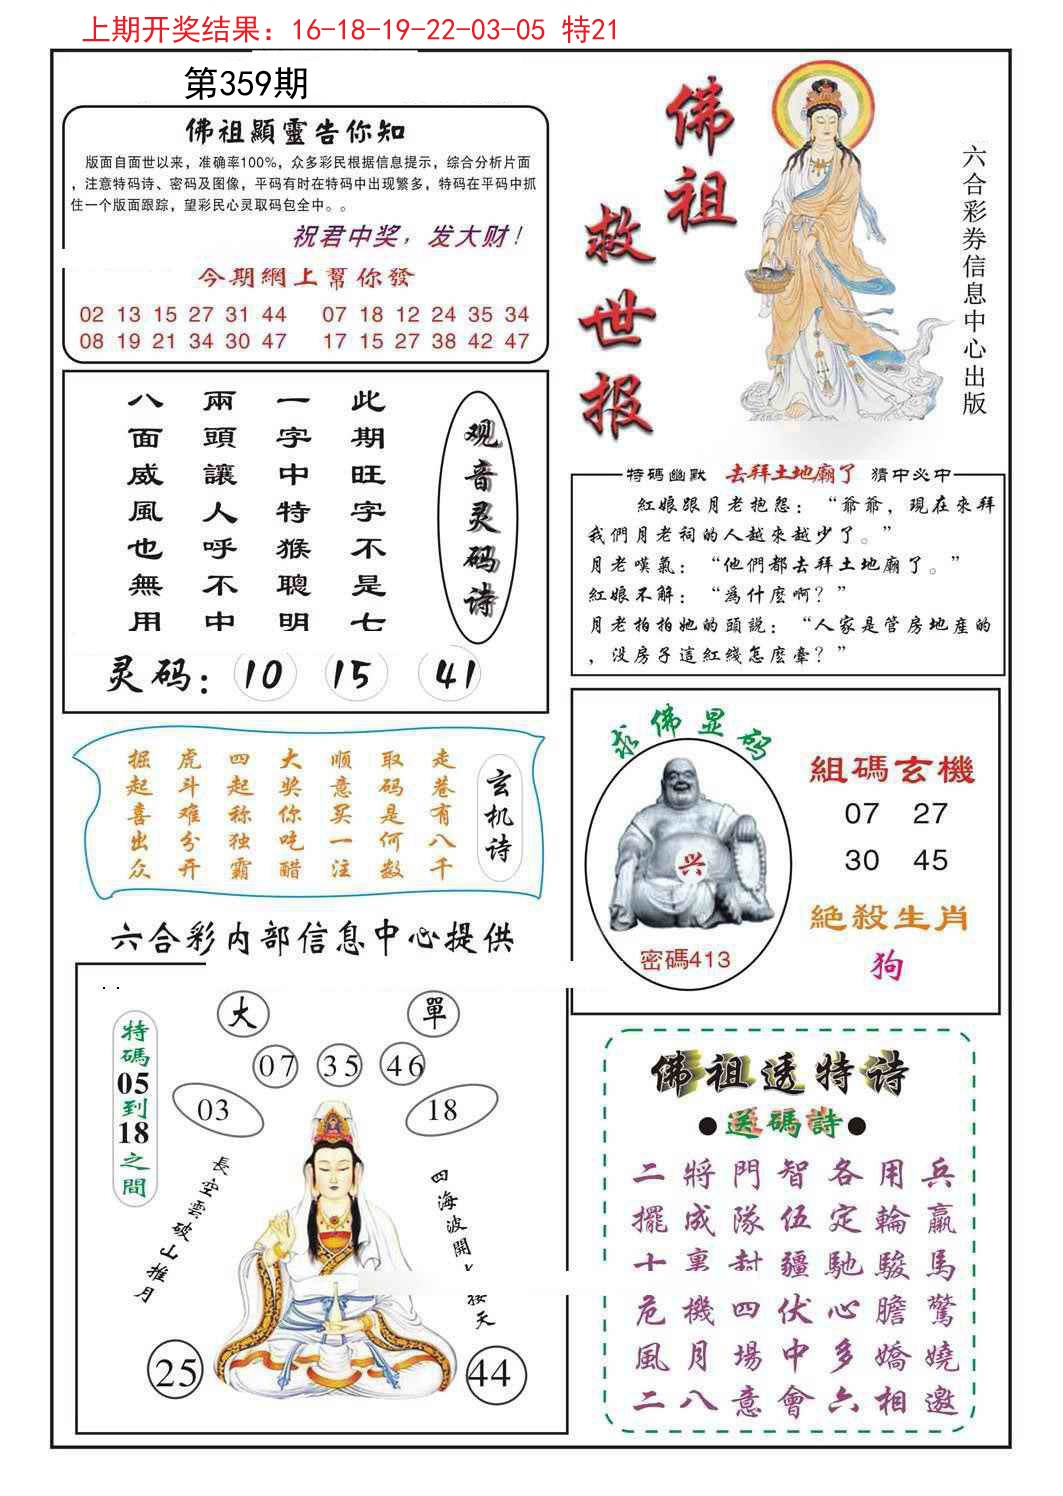 上期开奖结果：16-18-19-22-03-05 特21
第359期
佛祖顯靈告你知
版面自面世以来，准确率100%，众多彩民根据信息提示，综合分析片面
，注意特码诗、密码及图像，平码有时在特码中出现繁多，特码在平码中抓
住一个版面跟踪，望彩民心灵取码包全中。。
祝君中奖，发大财！
今期網上幫你發
02 13 15 27 31 44 07 18 12 24 35 34
08 19 21 34 30 47 17 15 27 38 42 47
佛祖救世报
六合彩券信息中心出版
观音灵码诗
此期旺字不是七
一字中特猴聰明
兩頭讓人呼不中
八面威風也無用
灵码：10 15 41
特碼幽默 去拜土地廟了 猜中必中
紅娘跟月老抱怨：“爺爺，現在來拜
我們月老祠的人越來越少了。”
月老嘆氣：“他們都去拜土地廟了。”
紅娘不解：“爲什麽啊？”
月老拍拍她的頭説：“人家是管房地産的
，没房子這紅綫怎麽牽？”
玄机诗
走巷有八千
取码是何数
顺意买一注
大奖你吃醋
四起称独霸
虎斗难分开
掘起喜出众
求佛显码
兴
密碼413
組碼玄機
07 27
30 45
絕殺生肖
狗
六合彩内部信息中心提供
大 單
07 35 46
03 18
特碼05到18之間
長空雲破山推月
四海波開
接天
25 44
佛祖透特诗
●送碼詩●
二將門智各用兵
擺成隊伍定輪贏
十裏封疆馳駿馬
危機四伏心膽驚
風月場中多嬌嬈
二八意會六相邀